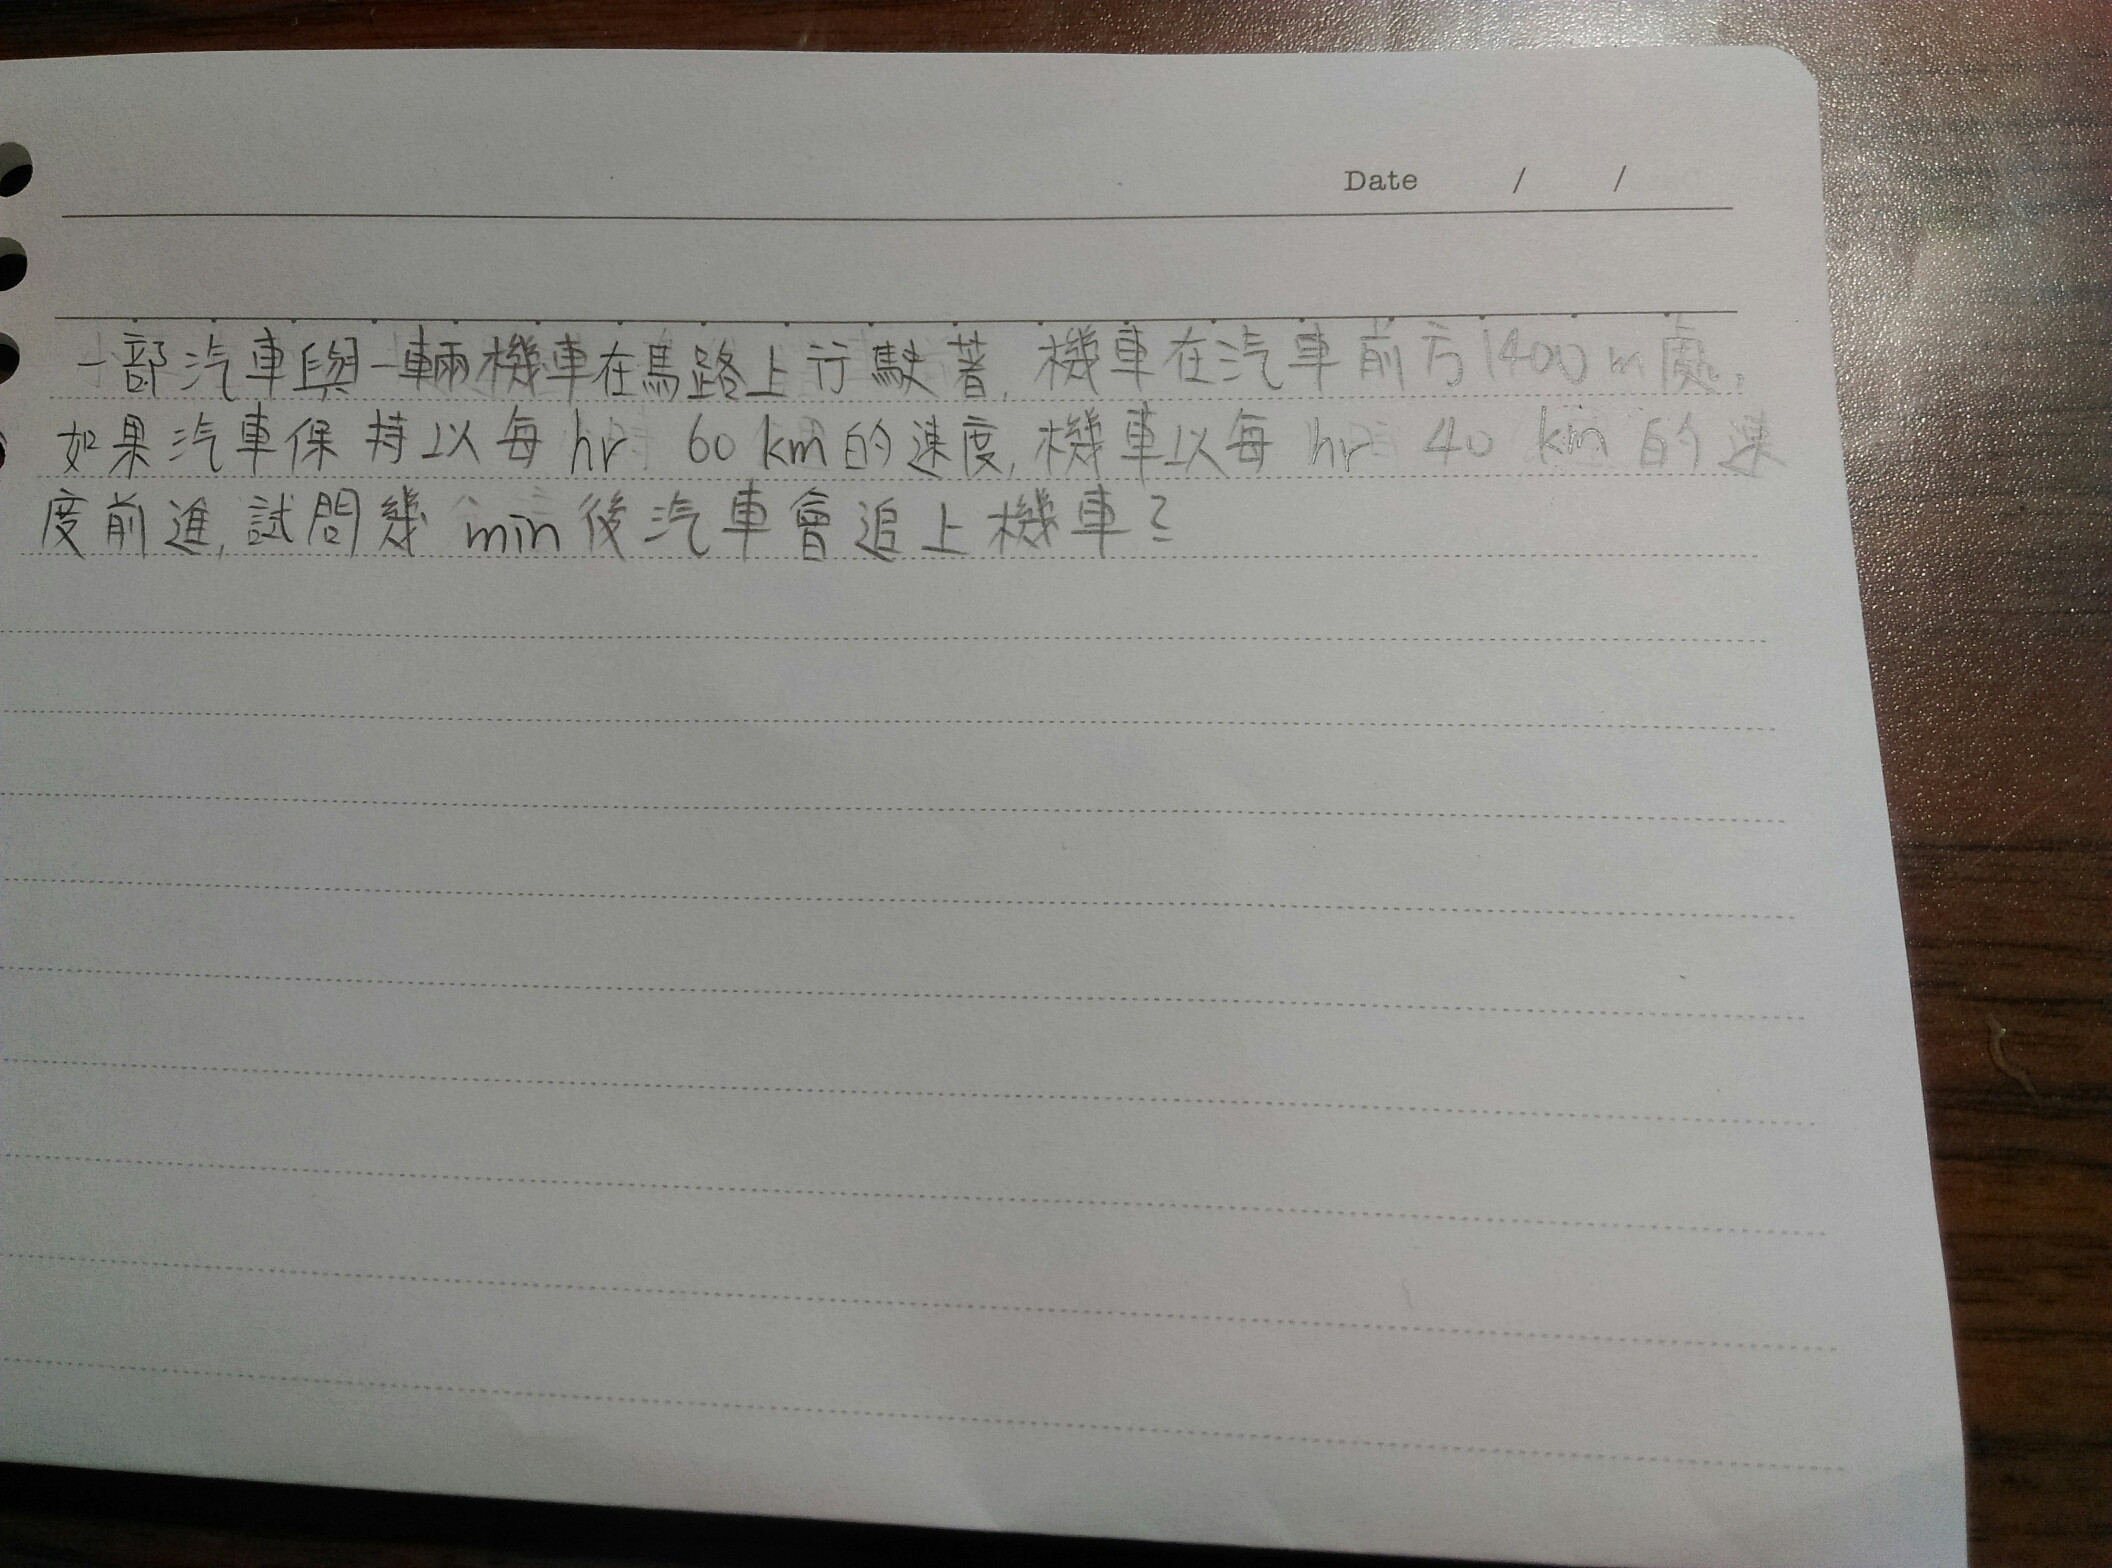 Date / /
一部汽車與一輛機車在馬路上行駛著,機車在汽車前方1400m處,
如果汽車保持以每hr 60 km的速度,機車以每hr 40 km的速
度前進,試問幾min後汽車會追上機車?